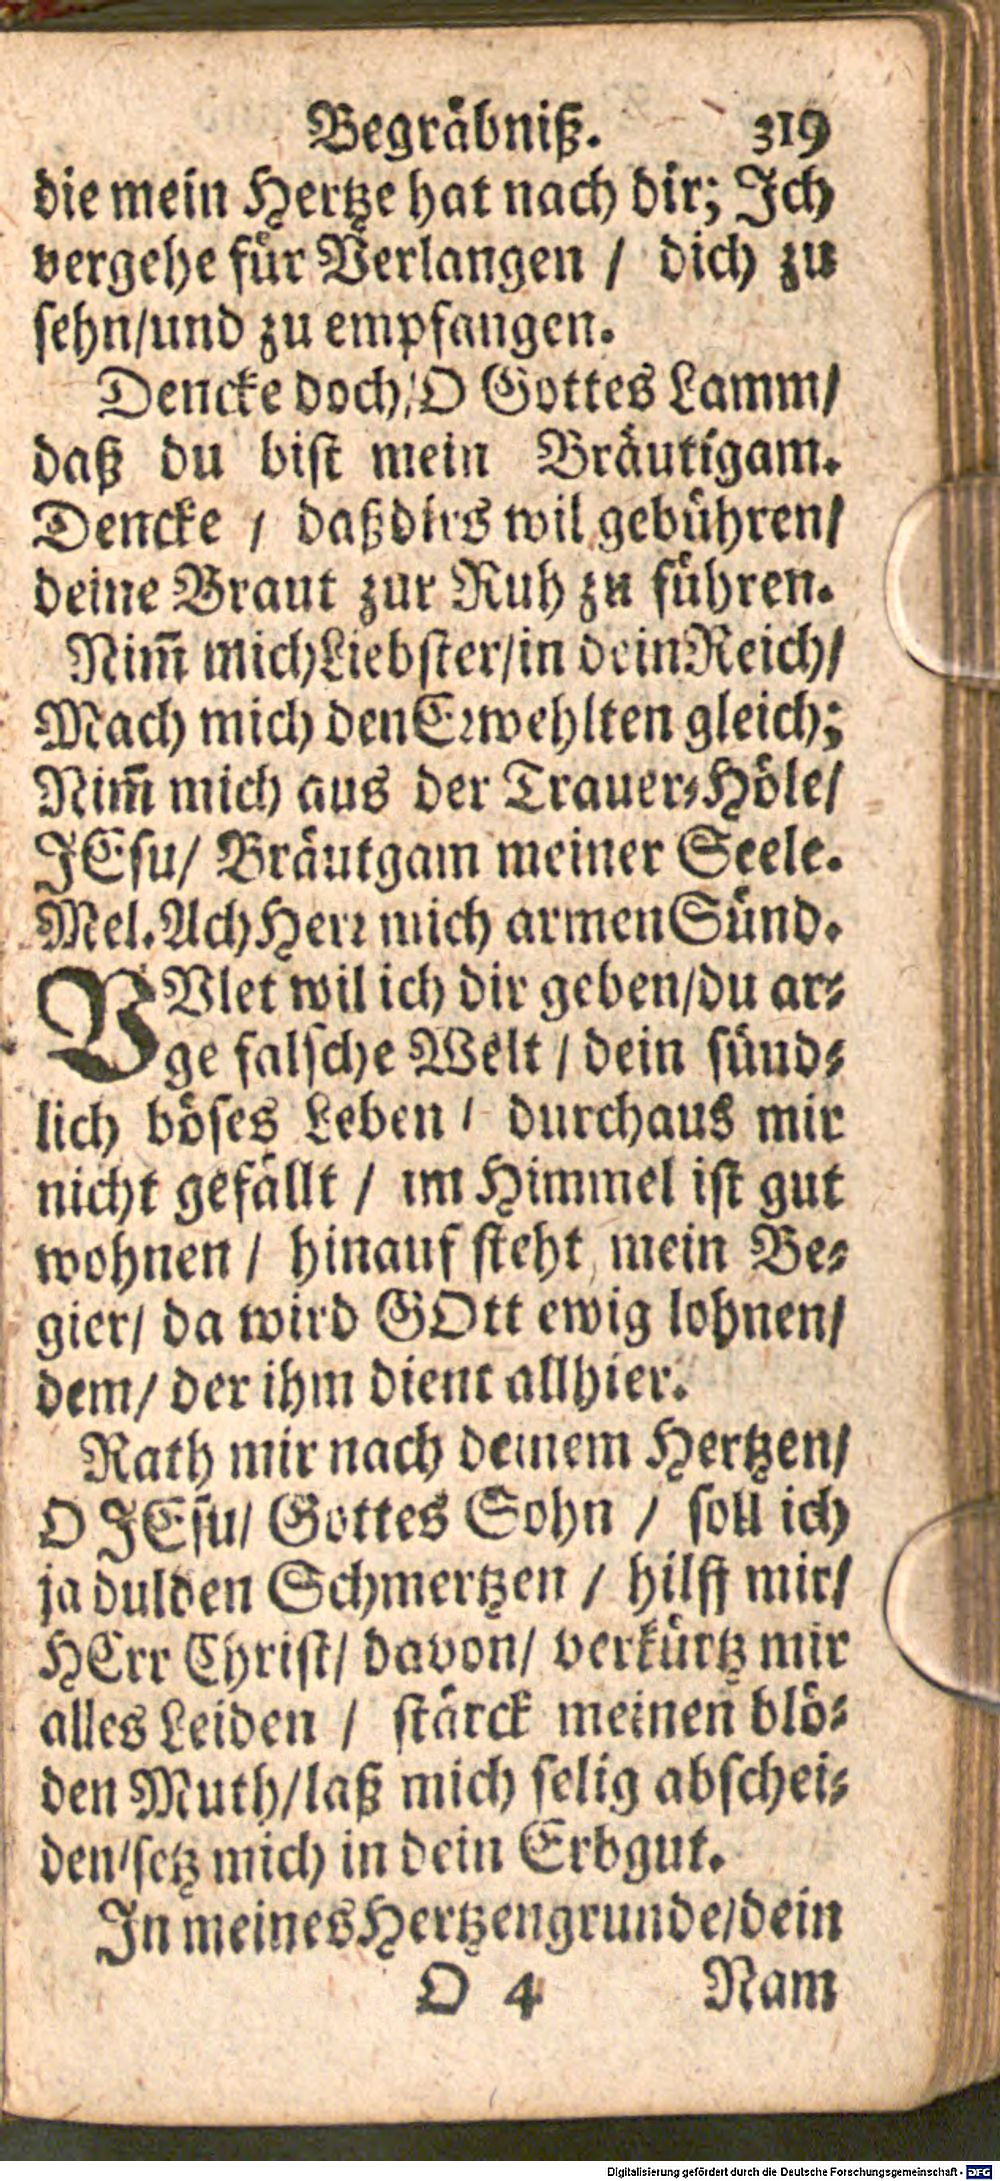 Begräbniß. 319
die mein Hertze hat nach dir; Ich
vergehe für Verlangen / dich zu
sehn/und zu empfangen.
Dencke doch/O Gottes Lamm/
daß du bist mein Bräutigam.
Dencke / daß dirs wil gebühren/
deine Braut zur Ruh zu führen.
Nim̃ mich Liebster/in dein Reich/
Mach mich den Erwehlten gleich;
Nim̃ mich aus der Trauer-Höle/
JEsu/ Bräutgam meiner Seele.
Mel. Ach Herr mich armen Sünd.
VVlet wil ich dir geben/du ar-
ge falsche Welt / dein sünd-
lich böses Leben / durchaus mir
nicht gefällt / im Himmel ist gut
wohnen / hinauf steht mein Be-
gier/ da wird GOtt ewig lohnen/
dem/ der ihm dient allhier.
Rath mir nach deinem Hertzen/
O JEsu/ Gottes Sohn / soll ich
ja dulden Schmertzen / hilff mir/
HErr Christ/ davon/ verkürtz mir
alles Leiden / stärck meinen blö-
den Muth/laß mich selig abschei-
den/setz mich in dein Erbgut.
In meines Hertzengrunde/dein
O 4 Nam
Digitalisierung gefördert durch die Deutsche Forschungsgemeinschaft - DFG